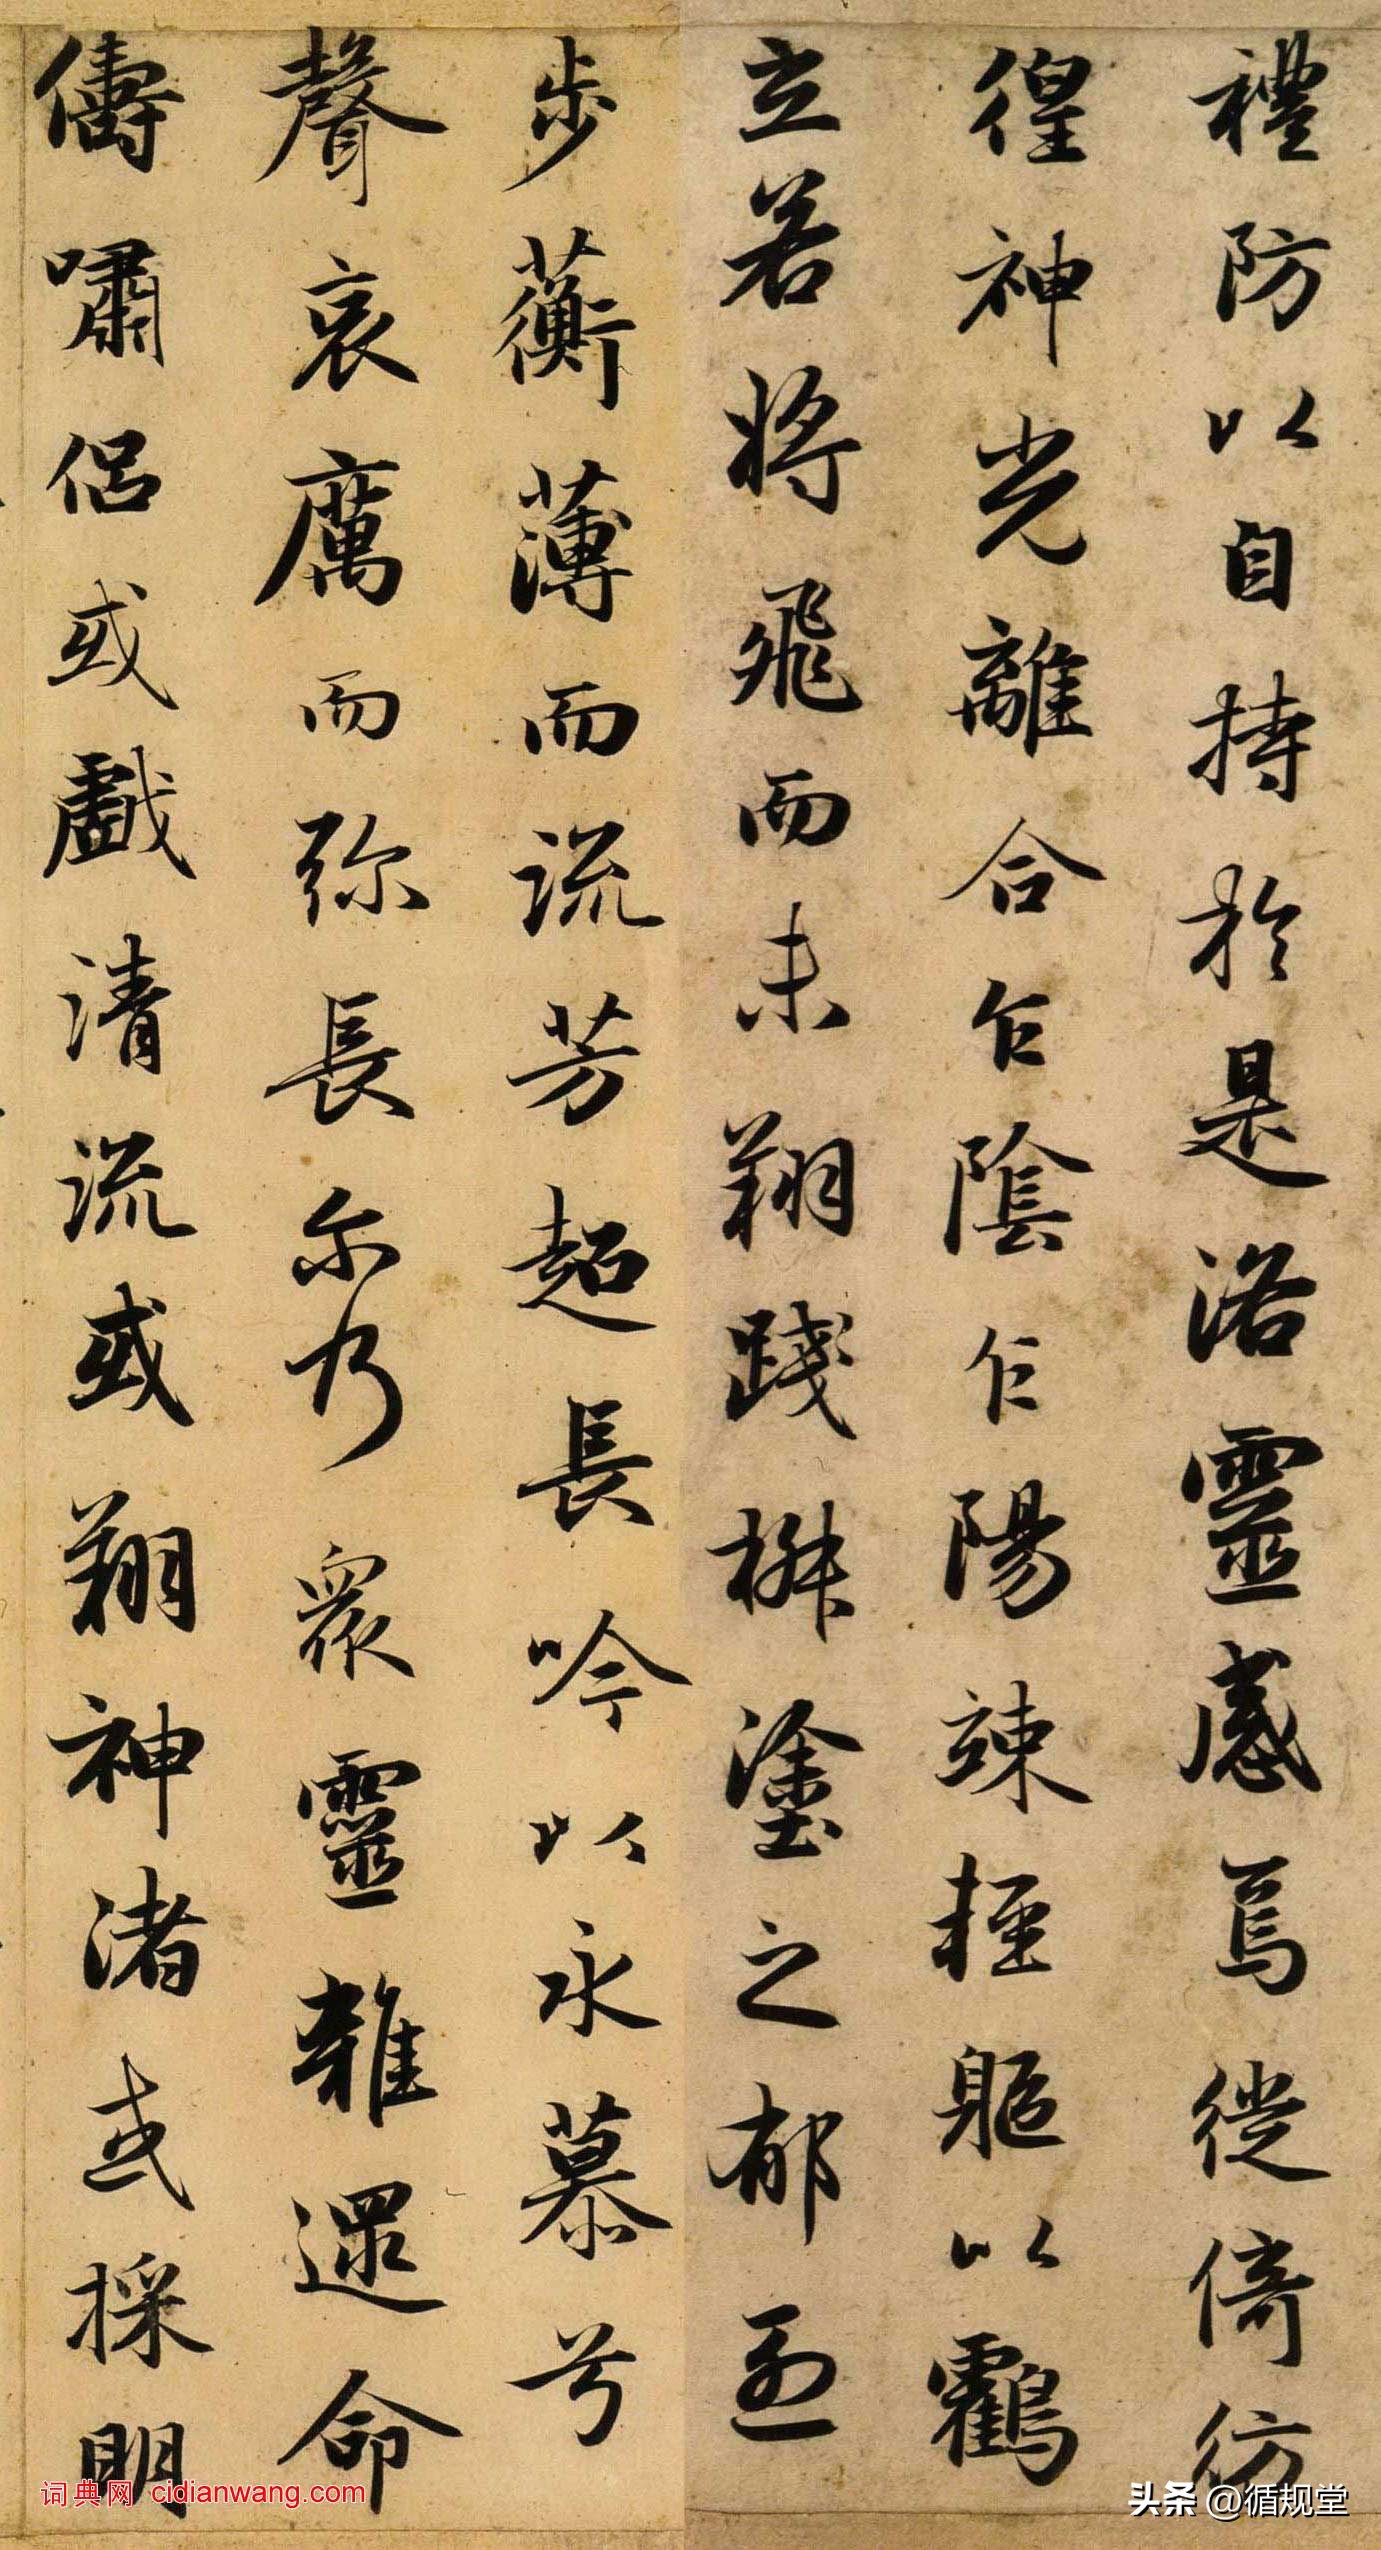 禮防以自持於是洛靈感焉徙倚彷
徨神光離合乍陰乍陽竦軽軀以鸖
立若将飛而未翔踐椒塗之郁烈
步蘅薄而流芳超長吟以永慕兮
聲哀厲而弥長尒乃眾靈雜遝命
儔嘯侣或戲清流或翔神渚或採明
词典网 cidianwang.com
头条 @循规堂